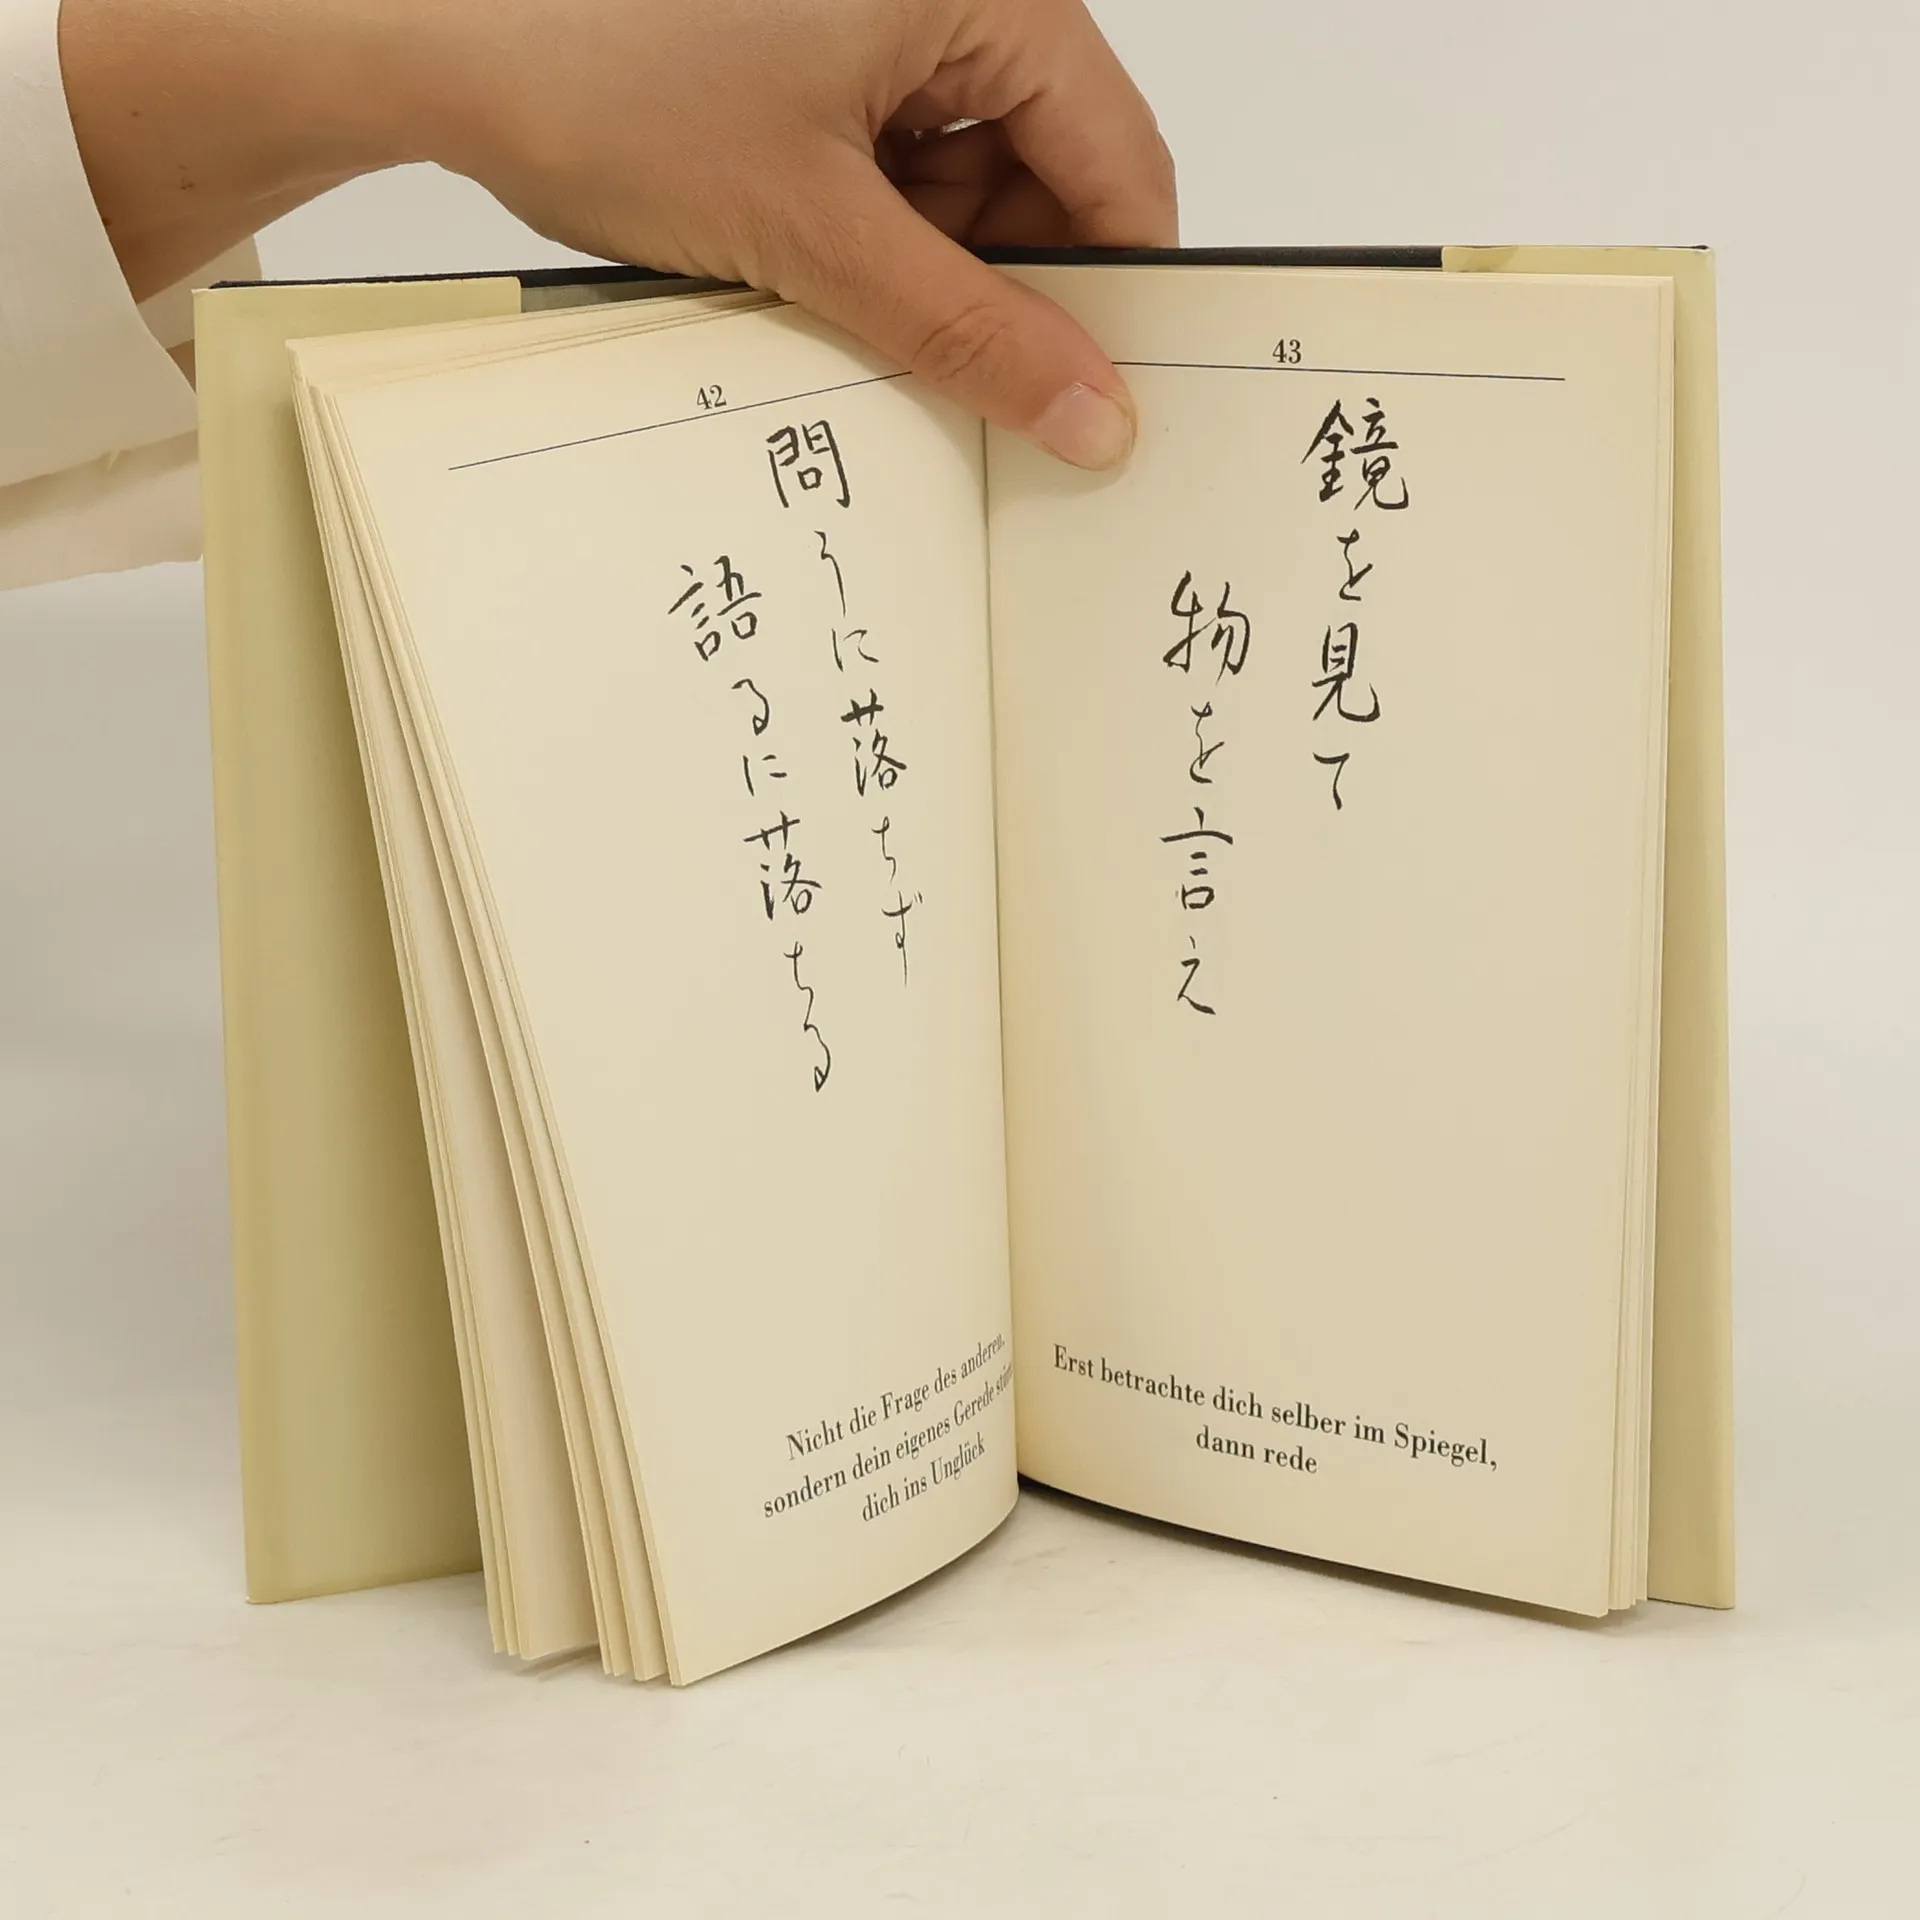 42
問うに落ちず
語るに落ちる
Nicht die Frage des anderen,
sondern dein eigenes Gerede
dich ins Unglück
43
鏡を見て
物を言え
Erst betrachte dich selber im Spiegel,
dann rede